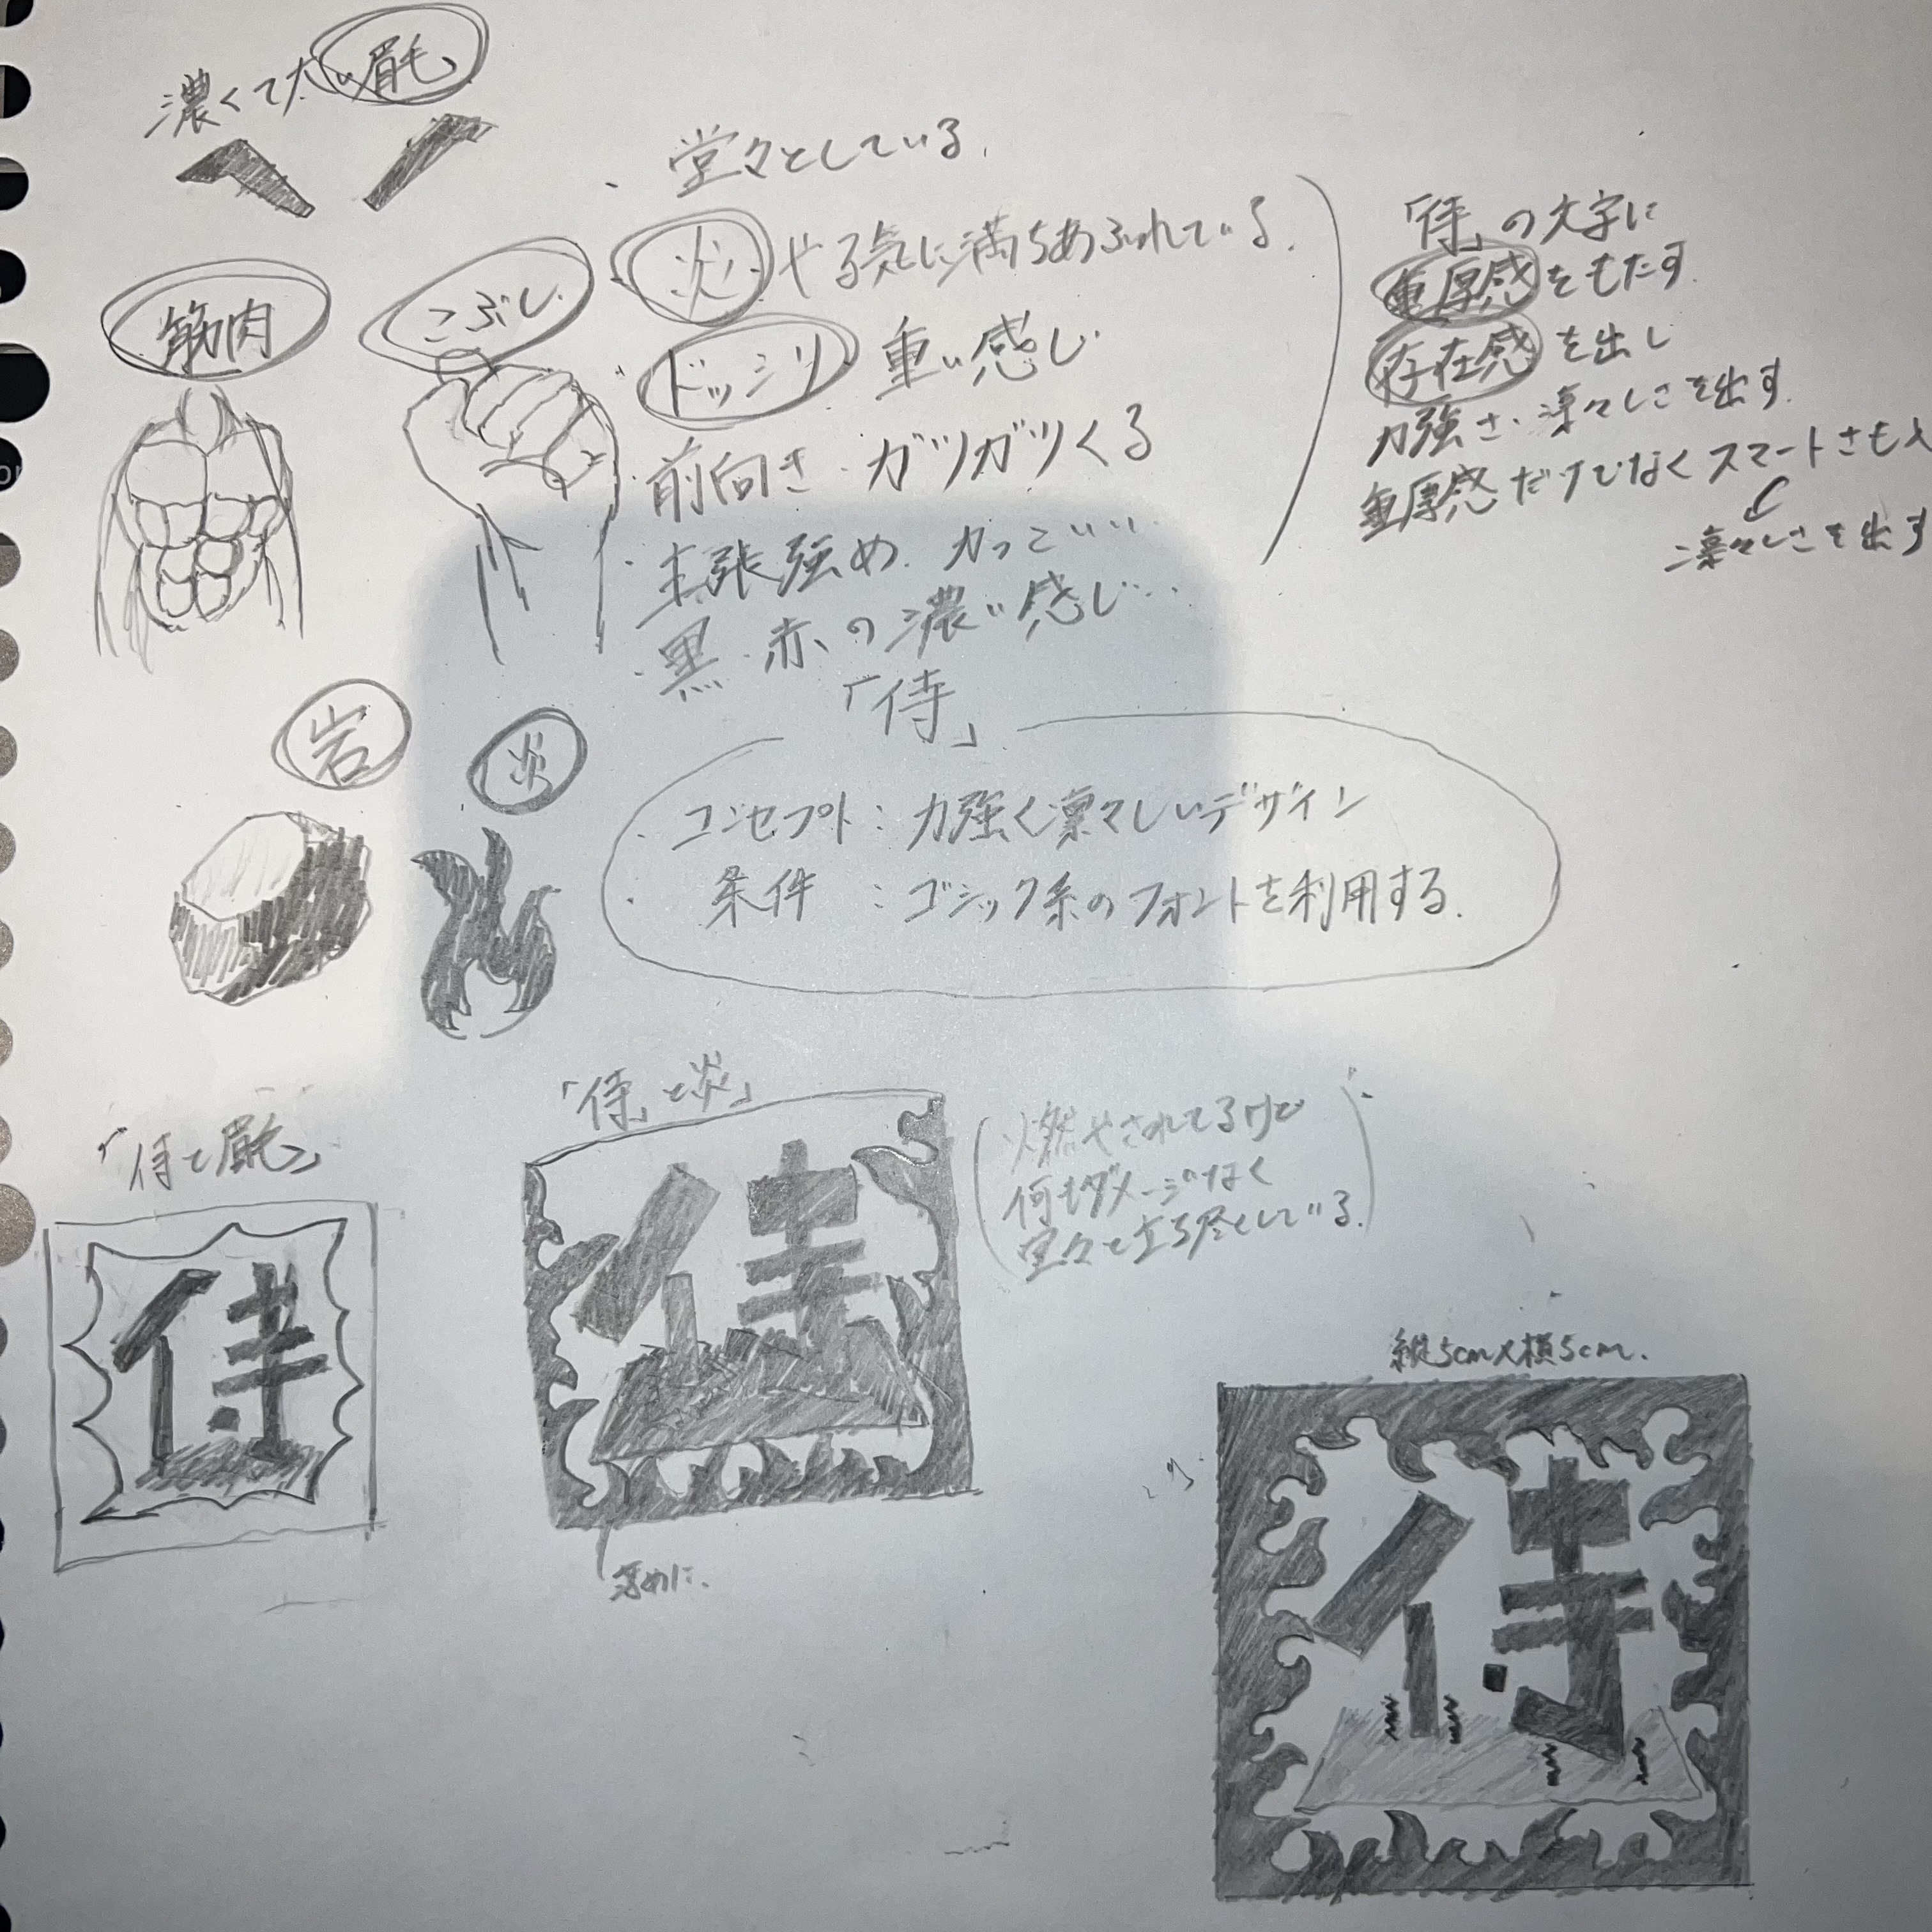 濃くて太い眉毛
筋肉
こぶし
・堂々としている.
・炎 やる気に満ちあふれている.
・ドッシリ 重い感じ
・前向き・ガツガツくる
・主張強め.かっこいい
・黒・赤の濃い感じ…
「侍」の文字に
重厚感をもたす.
存在感を出し
力強さ・凛々しさを出す.
重厚感だけでなくスマートさも入
凛々しさを出す
岩
炎
「侍」
・コンセプト:力強く凛々しいデザイン
・条件:ゴシック系のフォントを利用する.
「侍と眉毛」
侍
「侍」と炎」
侍
(燃やされてるけど
何もダメージなく
堂々と立ち尽くしている.)
縦5cm×横5cm.
侍